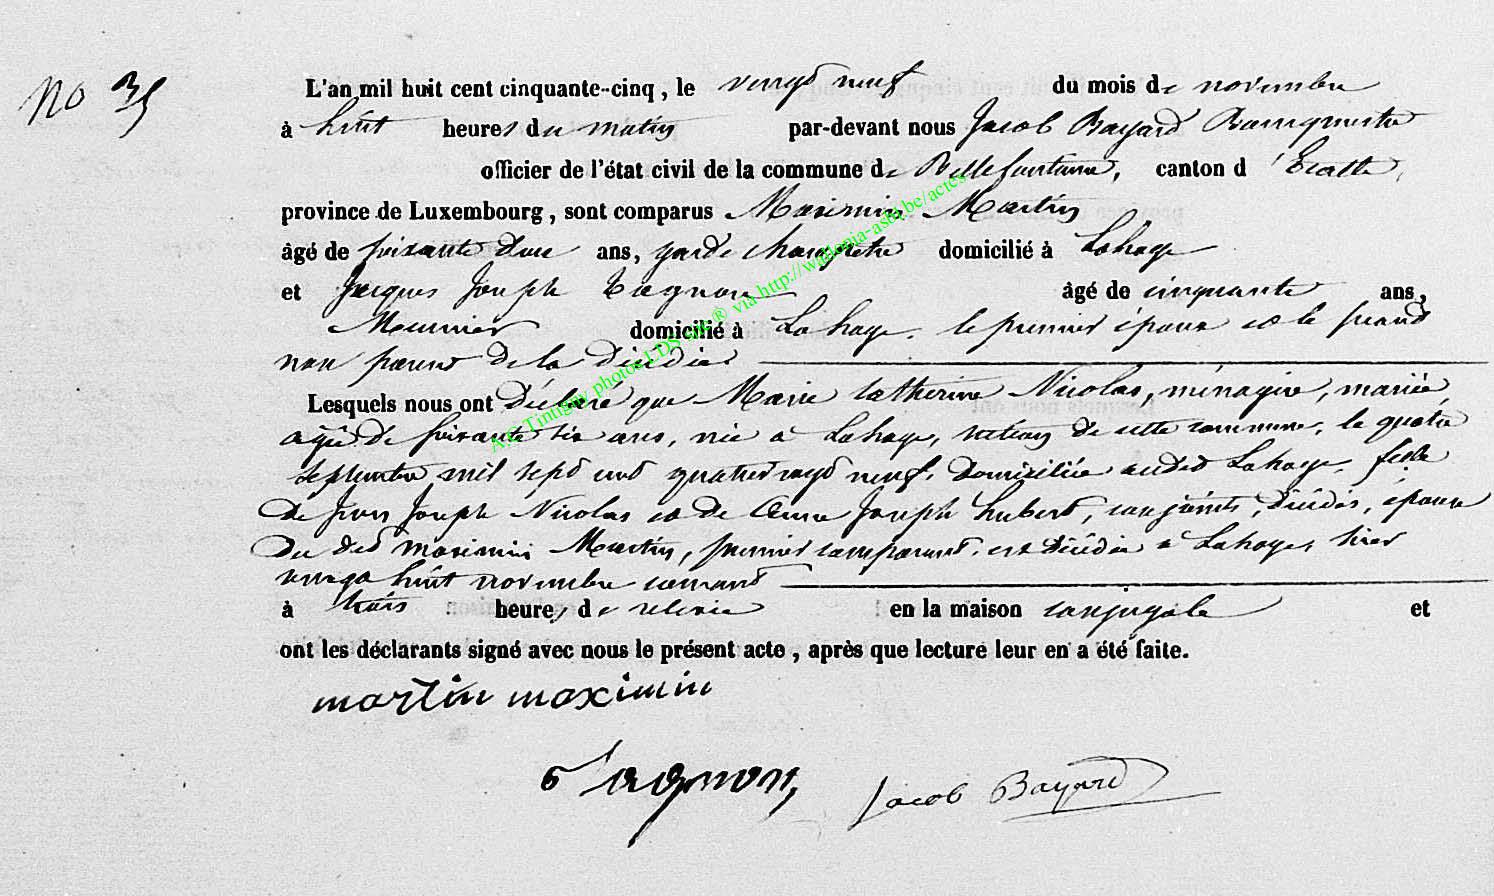 No 35
L'an mil huit cent cinquante-cinq, le vingt neuf du mois de novembre
à huit heures du matin par-devant nous Jacob Bayard Bourgmestre
officier de l'état civil de la commune de Bellefontaine, canton d'Etalle,
province de Luxembourg, sont comparus Maximin Martin
âgé de soixante deux ans, garde champetre domicilié à Lahage
et Jacques Joseph Tagnon âgé de cinquante ans,
Meunier domicilié à Lahage, le premier époux et le second
non parent de la décédée
Lesquels nous ont Déclaré que Marie Catherine Nicolas, ménagère, mariée,
agée de soixante six ans, née a Lahage, section de cette commune, le quatre
septembre mil sept cent quatrevingt neuf, domiciliée audit Lahage, fille
de Jean Joseph Nicolas et de Anne Joseph Hubert, conjoints, décédés, épouse
du dit Maximin Martin, premier comparant, est décédée a Lahage, hier
vingt huit novembre courant
à trois heures de relevée en la maison conjugale et
ont les déclarants signé avec nous le présent acte, après que lecture leur en a été faite.
martin maximin
Tagnon
Jacob Bayard
A.G Tintigny photos LDS sur ® via http://wallonia-asbl.be/actes